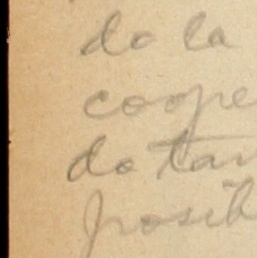 do la
coope
do tan
posib